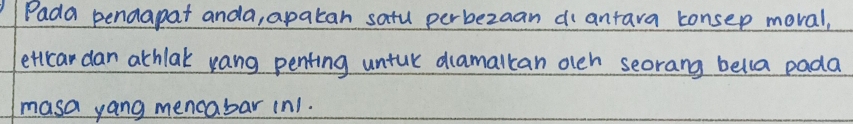 Pada pendapat anda, apakah satu perbezaan di antara konsep moral,
etika dan akhlak yang penting untuk diamalkan oleh seorang belia pada
masa yang mencabar ini.